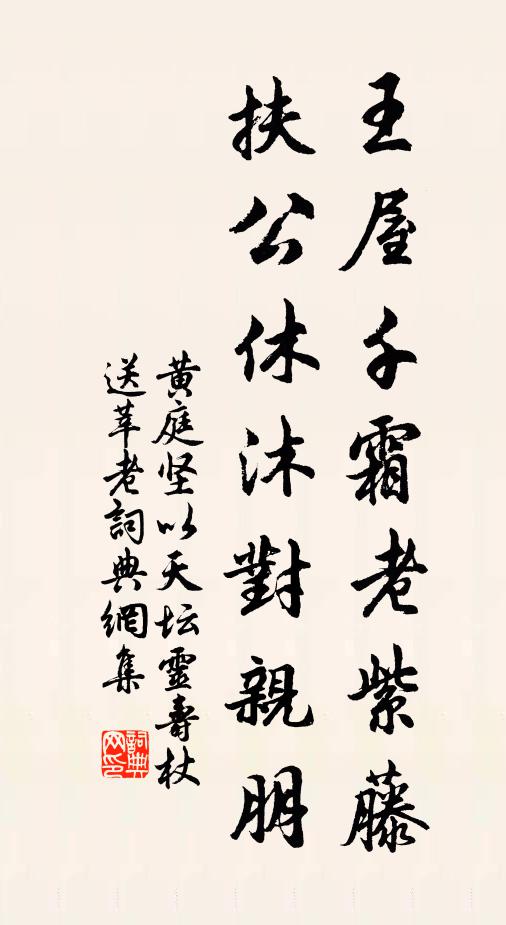 王屋千霜老紫藤
扶公休沐對親朋
黄庭坚以天坛靈壽杖
送莘老詞典網集
詞典
网印